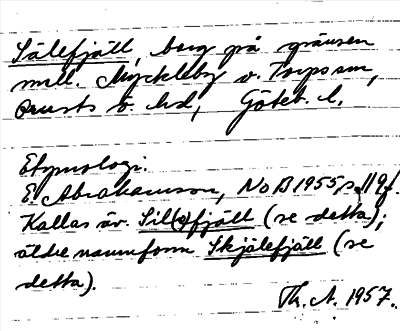 Sälefjäll, berg på gränsen
mell. Myckleby o. Torps sn,
Orusts v. hd, Göteb. l.
Etymologi.
E. Abrahamson, NoB 1955, s. 119 f.
Kallas äv. Sill(e)fjäll (se detta);
äldre namnform Skjälefjäll (se
detta).
Th. A. 1957.